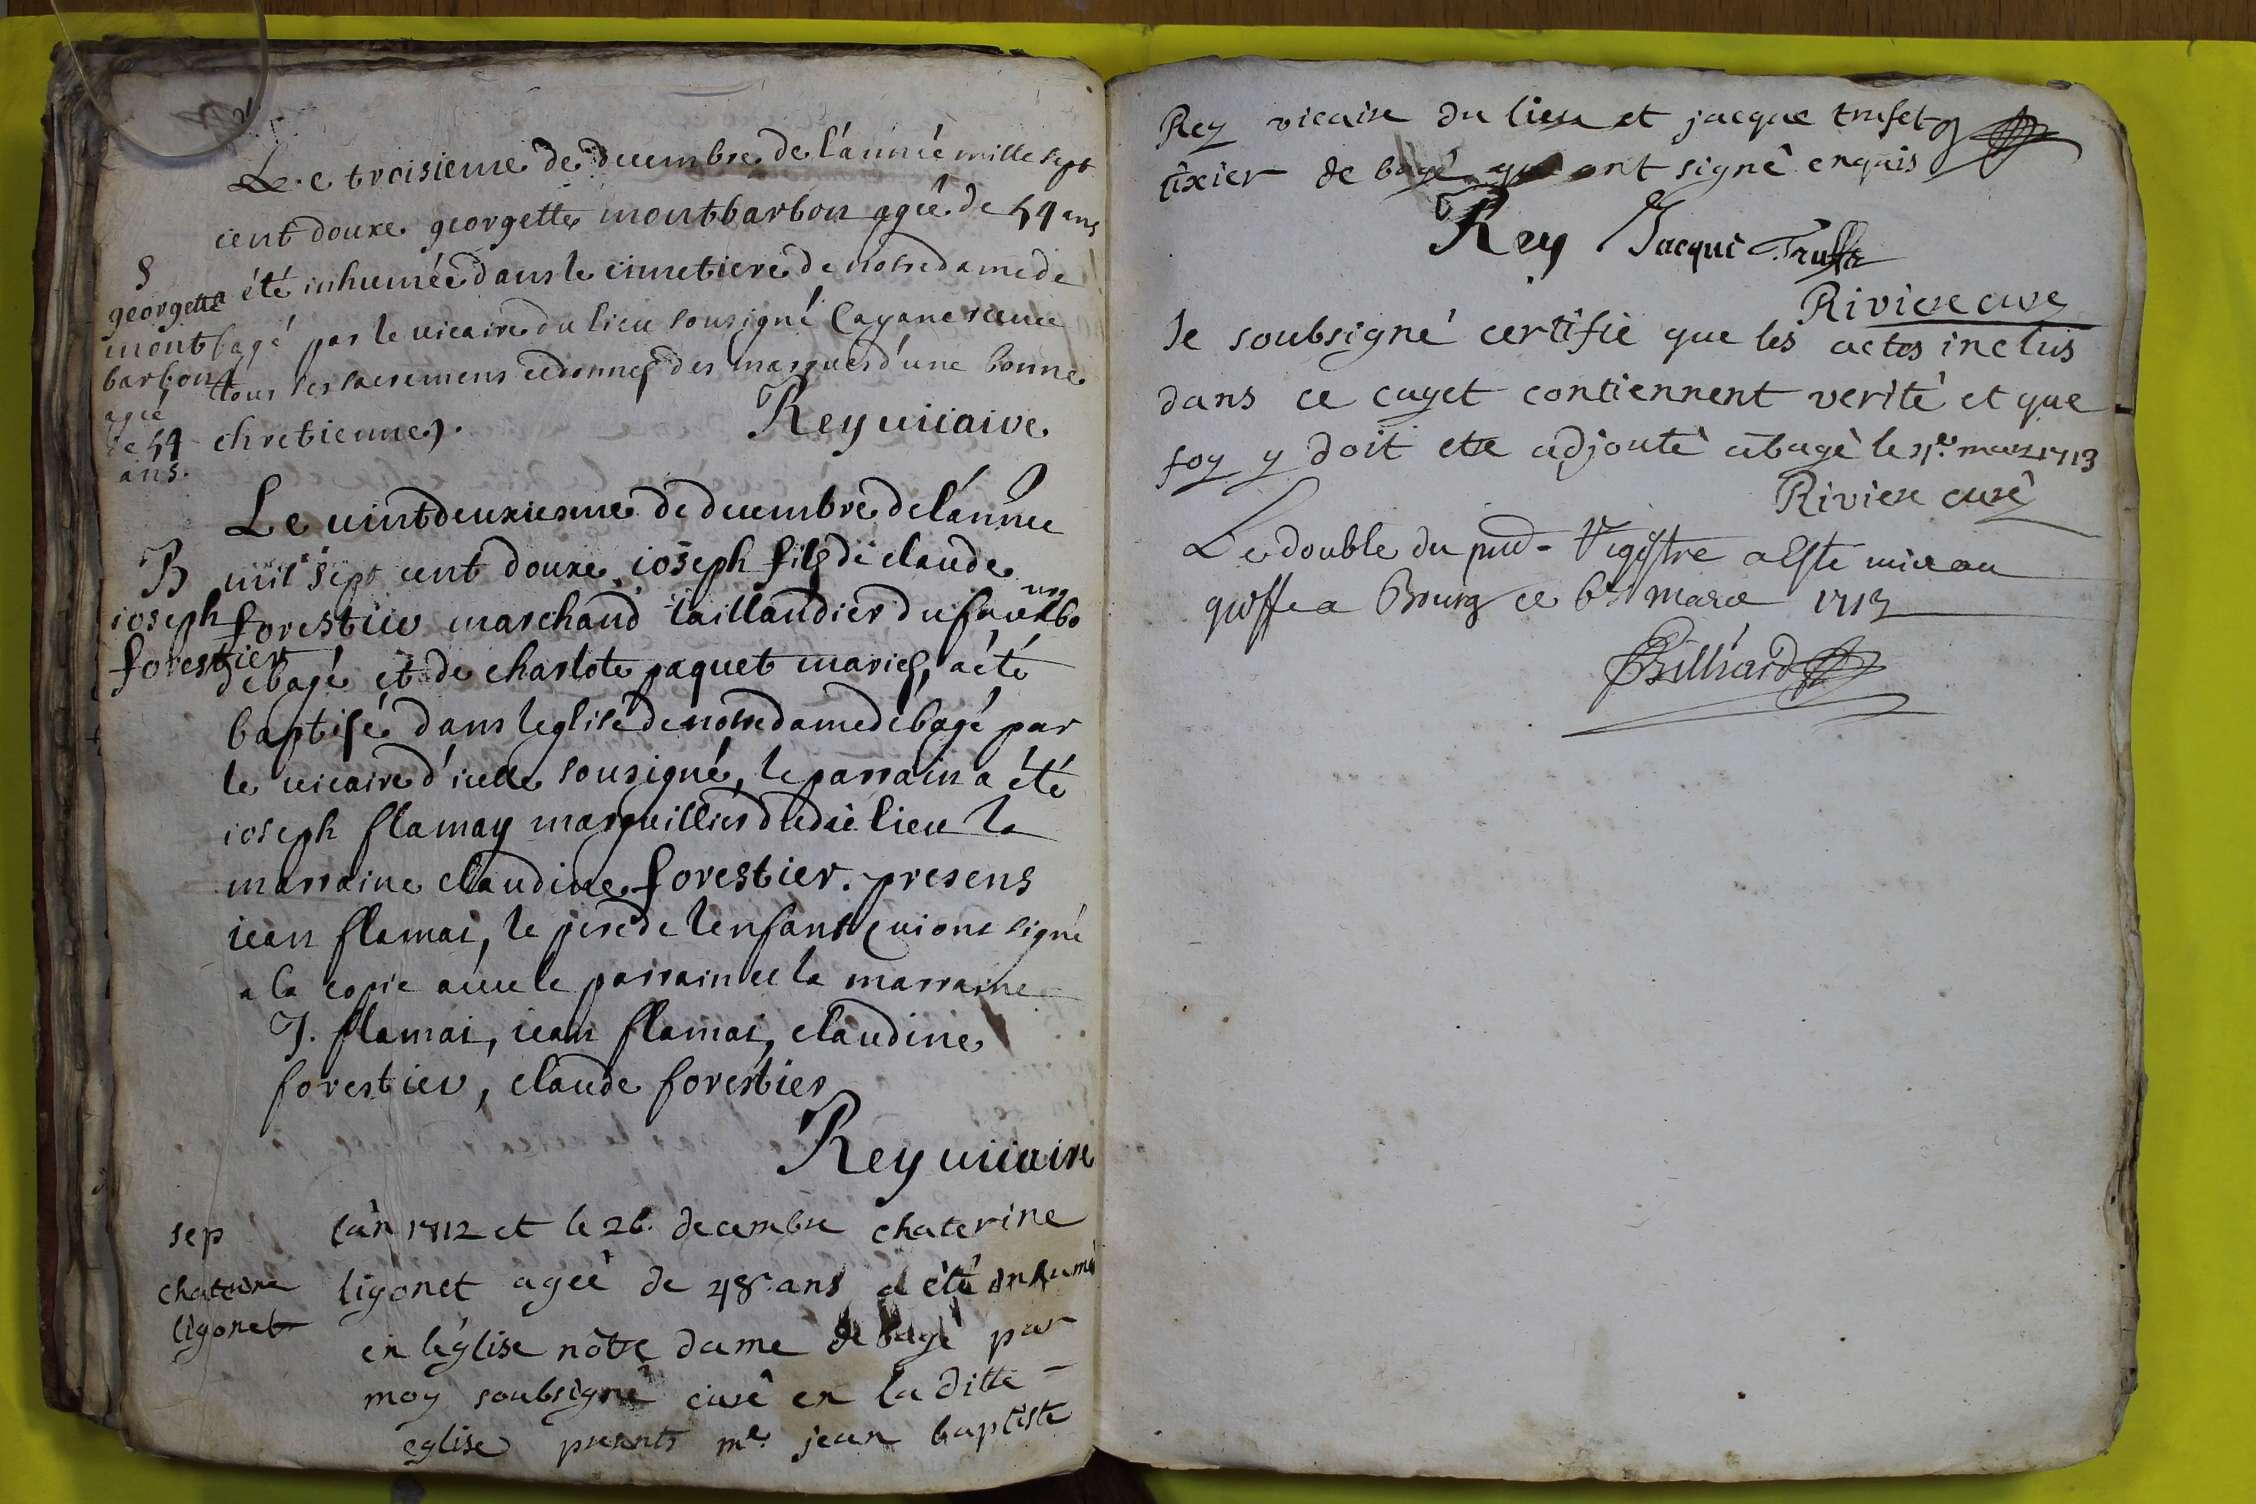 Le troisieme de decembre de l'année mille sept
cent douxe georgette montbarbon agée de 54 ans
S
georgette
mont
barbon
agée
de 54
ans.
a été inhumée dans le cimetiere de notre dame de
bagé par le vicaire du lieu sousigné layant receu
tous ses sacremens et donnes des marques d'une bonne
chretienne.
Rey vicaire
Le vint deuxiesme de decembre de l'année
B
ioseph
forestier
mil sept cent douxe ioseph fils de claude
forestier marchand taillandier du fauxbourg
de bagé et de charlote paquet maries, a été
baptisé dans leglise de notre dame de bagé par
le vicaire d'icelle sousigné, le parrain a été
ioseph flamay marguillier dudit lieu la
marraine claudine forestier. presens
iean flamai, le pere de lenfant qui ont signé
a la copie avec le parrain et la marraine
J. flamai, iean flamai, claudine
forestier, claude forestier
Rey vicaire
sep
chaterine
ligonet
l'an 1712 et le 26. decembre chaterine
ligonet ageè de 48 ans a été inhumé
en l'église nôtre dame de bagé par
moy soubsigné curé en la ditte
eglise presents me. jean baptiste
Rey vicaire du lieu et jacque trufet
tixier de bagé qui ont signê enquis
Rey Jacque Truffet
Riviere curé
Je soubsigné certifie que les actes inclus
dans ce cayet contiennent verité et que
foy y doit etre adjouté a bagé le mars 1713
Riviere curé
Le double du pnt Registre a Este mis au
greffe a Bourg ce 6e mars 1713
Billiard